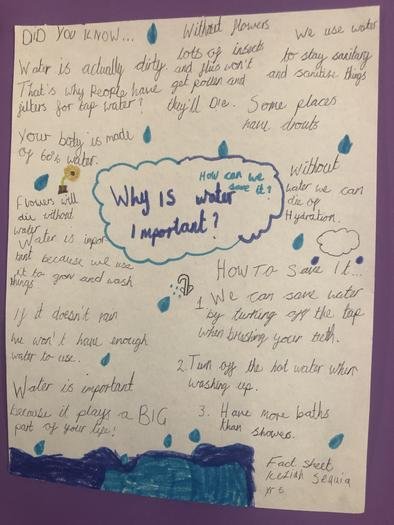 DID YOU KNOW...
Water is actually dirty.
That's why people have
filters for tap water?
Your body is made
of 60% water.
Flowers will
die without
water
Water is impor
tant because we use
it to grow and wash
things
If it doesn't rain
we won't have enough
water to use.
Water is important
because it plays a BIG
part of your life!
Without flowers
lots of insects
and flies won't
get pollen and
they'll Die.
We use water
to stay sanitary
and sanitise things
Some places
have drouts
Why is water
important?
How can we
save it?
Without
water we can
die of
Hydration.
HOW TO Save It...
1. We can save water
by turning off the tap
when brushing your teeth.
2. Turn off the hot water when
washing up.
3. Have more baths
than shower.
Fact sheet
Keziah Sequia
yr 5